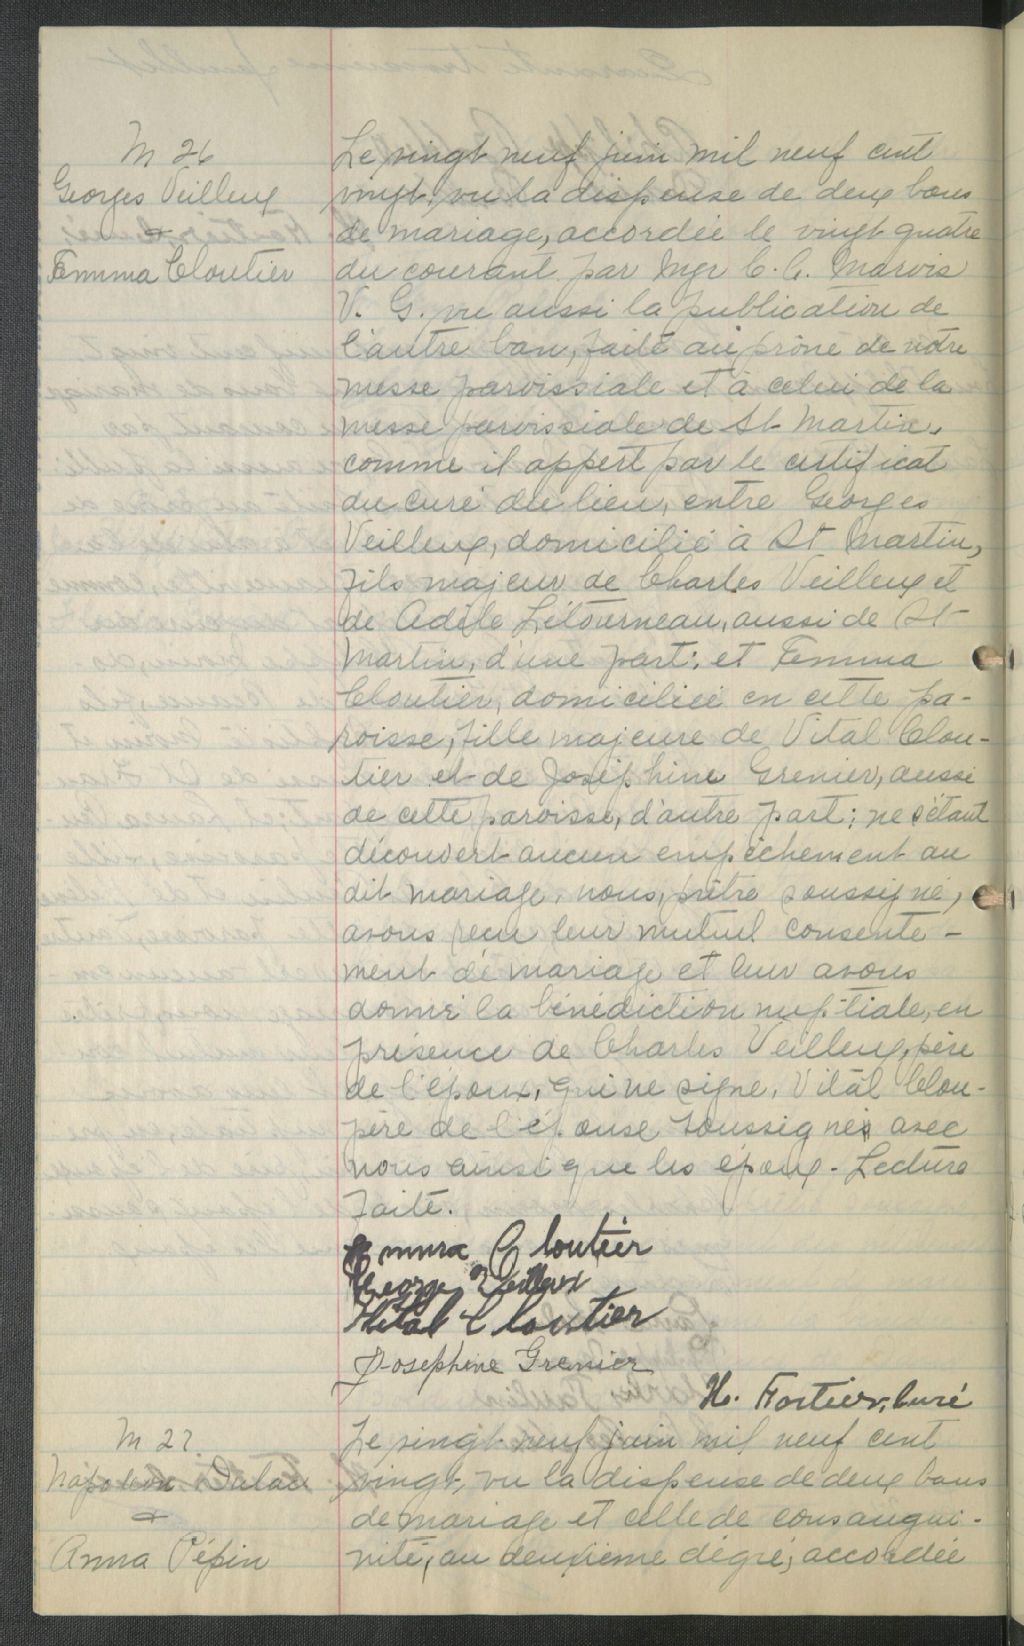 M 26
Georges Veilleux
&
Emma Cloutier
Le vingt neuf juin mil neuf cent
vingt, vu la dispense de deux bans
de mariage, accordée le vingt quatre
du courant par Mgr C. A. Marois
V. G. vu aussi la publication de
l'autre ban, faite au prône de notre
messe paroissiale et à celui de la
messe paroissiale de St Martin,
comme il appert par le certificat
du curé du lieu, entre Georges
Veilleux, domicilié à St Martin,
fils majeur de Charles Veilleux et
de Adèle Létourneau, aussi de St
Martin, d'une part; et Emma
Cloutier, domiciliée en cette pa-
roisse, fille majeure de Vital Clou-
tier et de Joséphine Grenier, aussi
de cette paroisse, d'autre part; ne s'étant
découvert aucun empêchement au
dit mariage, nous, prêtre soussigné,
avons reçu leur mutuel consente-
ment de mariage et leur avons
donné la bénédiction nuptiale, en
présence de Charles Veilleux, père
de l'époux, qui ne signe, Vital Clou-
père de l'épouse soussigné avec
nous ainsi que les époux - Lecture
faite.
Emma Cloutier
George Veilleux
Vital Cloutier
Josephine Grenier
H. Fortier, curé
M 27.
Napoléon Dulac
&
Anna Pépin
Le vingt neuf juin mil neuf cent
vingt, vu la dispense de deux bans
de mariage et celle de consangui-
nité, au deuxième degré, accordée